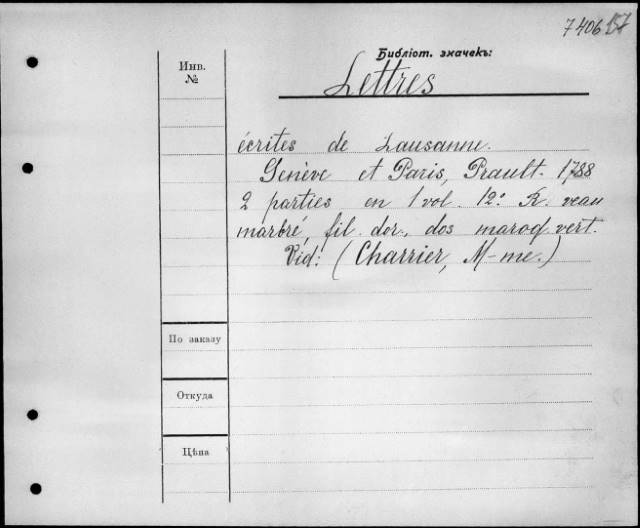 7406
Библіот. значекъ:
Инв.
№
Lettres
écrites de Lausanne.
Genève et Paris, Prault. 1788
2 parties en 1 vol. 12° R. veau
marbré, fil. dor., dos maroq. vert.
Vid: (Charrier, M-me.)
По заказу
Откуда
Цѣна